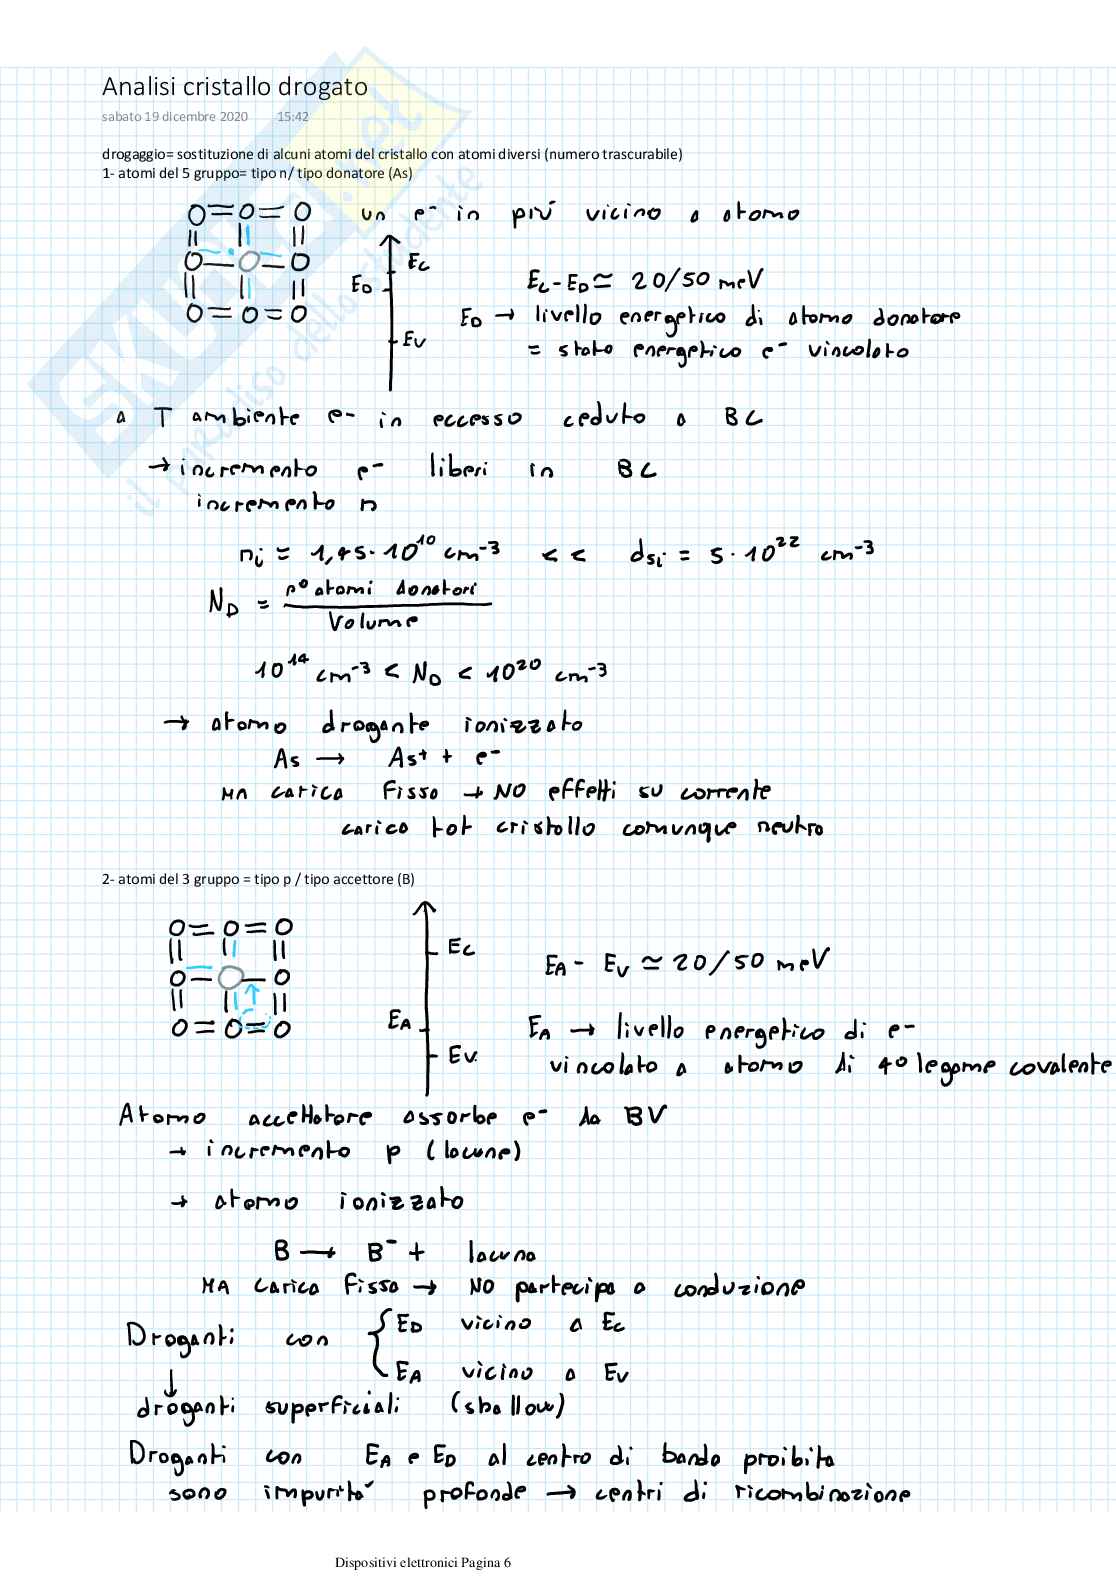 Analisi cristallo drogato
sabato 19 dicembre 2020 15:42
drogaggio= sostituzione di alcuni atomi del cristallo con atomi diversi (numero trascurabile)
1- atomi del 5 gruppo= tipo n/ tipo donatore (As)
un e- in più vicino a atomo
EC
ED
EV
EC-ED≃ 20/50 meV
ED → livello energetico di atomo donatore
= stato energetico e- vincolato
a T ambiente e- in eccesso ceduto a BC
→ incremento e- liberi in BC
incremento n
ni = 1,45·10^10 cm^-3 << dsi = 5·10^22 cm^-3
ND = n° atomi donatori / Volume
10^14 cm^-3 < ND < 10^20 cm^-3
→ atomo drogante ionizzato
As → As+ + e-
MA carica fissa → NO effetti su corrente
carica tot cristallo comunque neutra
2- atomi del 3 gruppo = tipo p / tipo accettore (B)
EC
EA
EV
EA - EV ≃ 20/50 meV
EA → livello energetico di e-
vincolato a atomo di 4° legame covalente
Atomo accettatore assorbe e- da BV
→ incremento p (lacune)
→ atomo ionizzato
B → B- + lacuna
MA carica fissa → NO partecipa a conduzione
Droganti con { ED vicino a EC
EA vicino a EV
↓
droganti superficiali (shallow)
Droganti con EA e ED al centro di banda proibita
sono impurità profonde → centri di ricombinazione
Dispositivi elettronici Pagina 6
SKUOLA.net
il paradiso dello studente